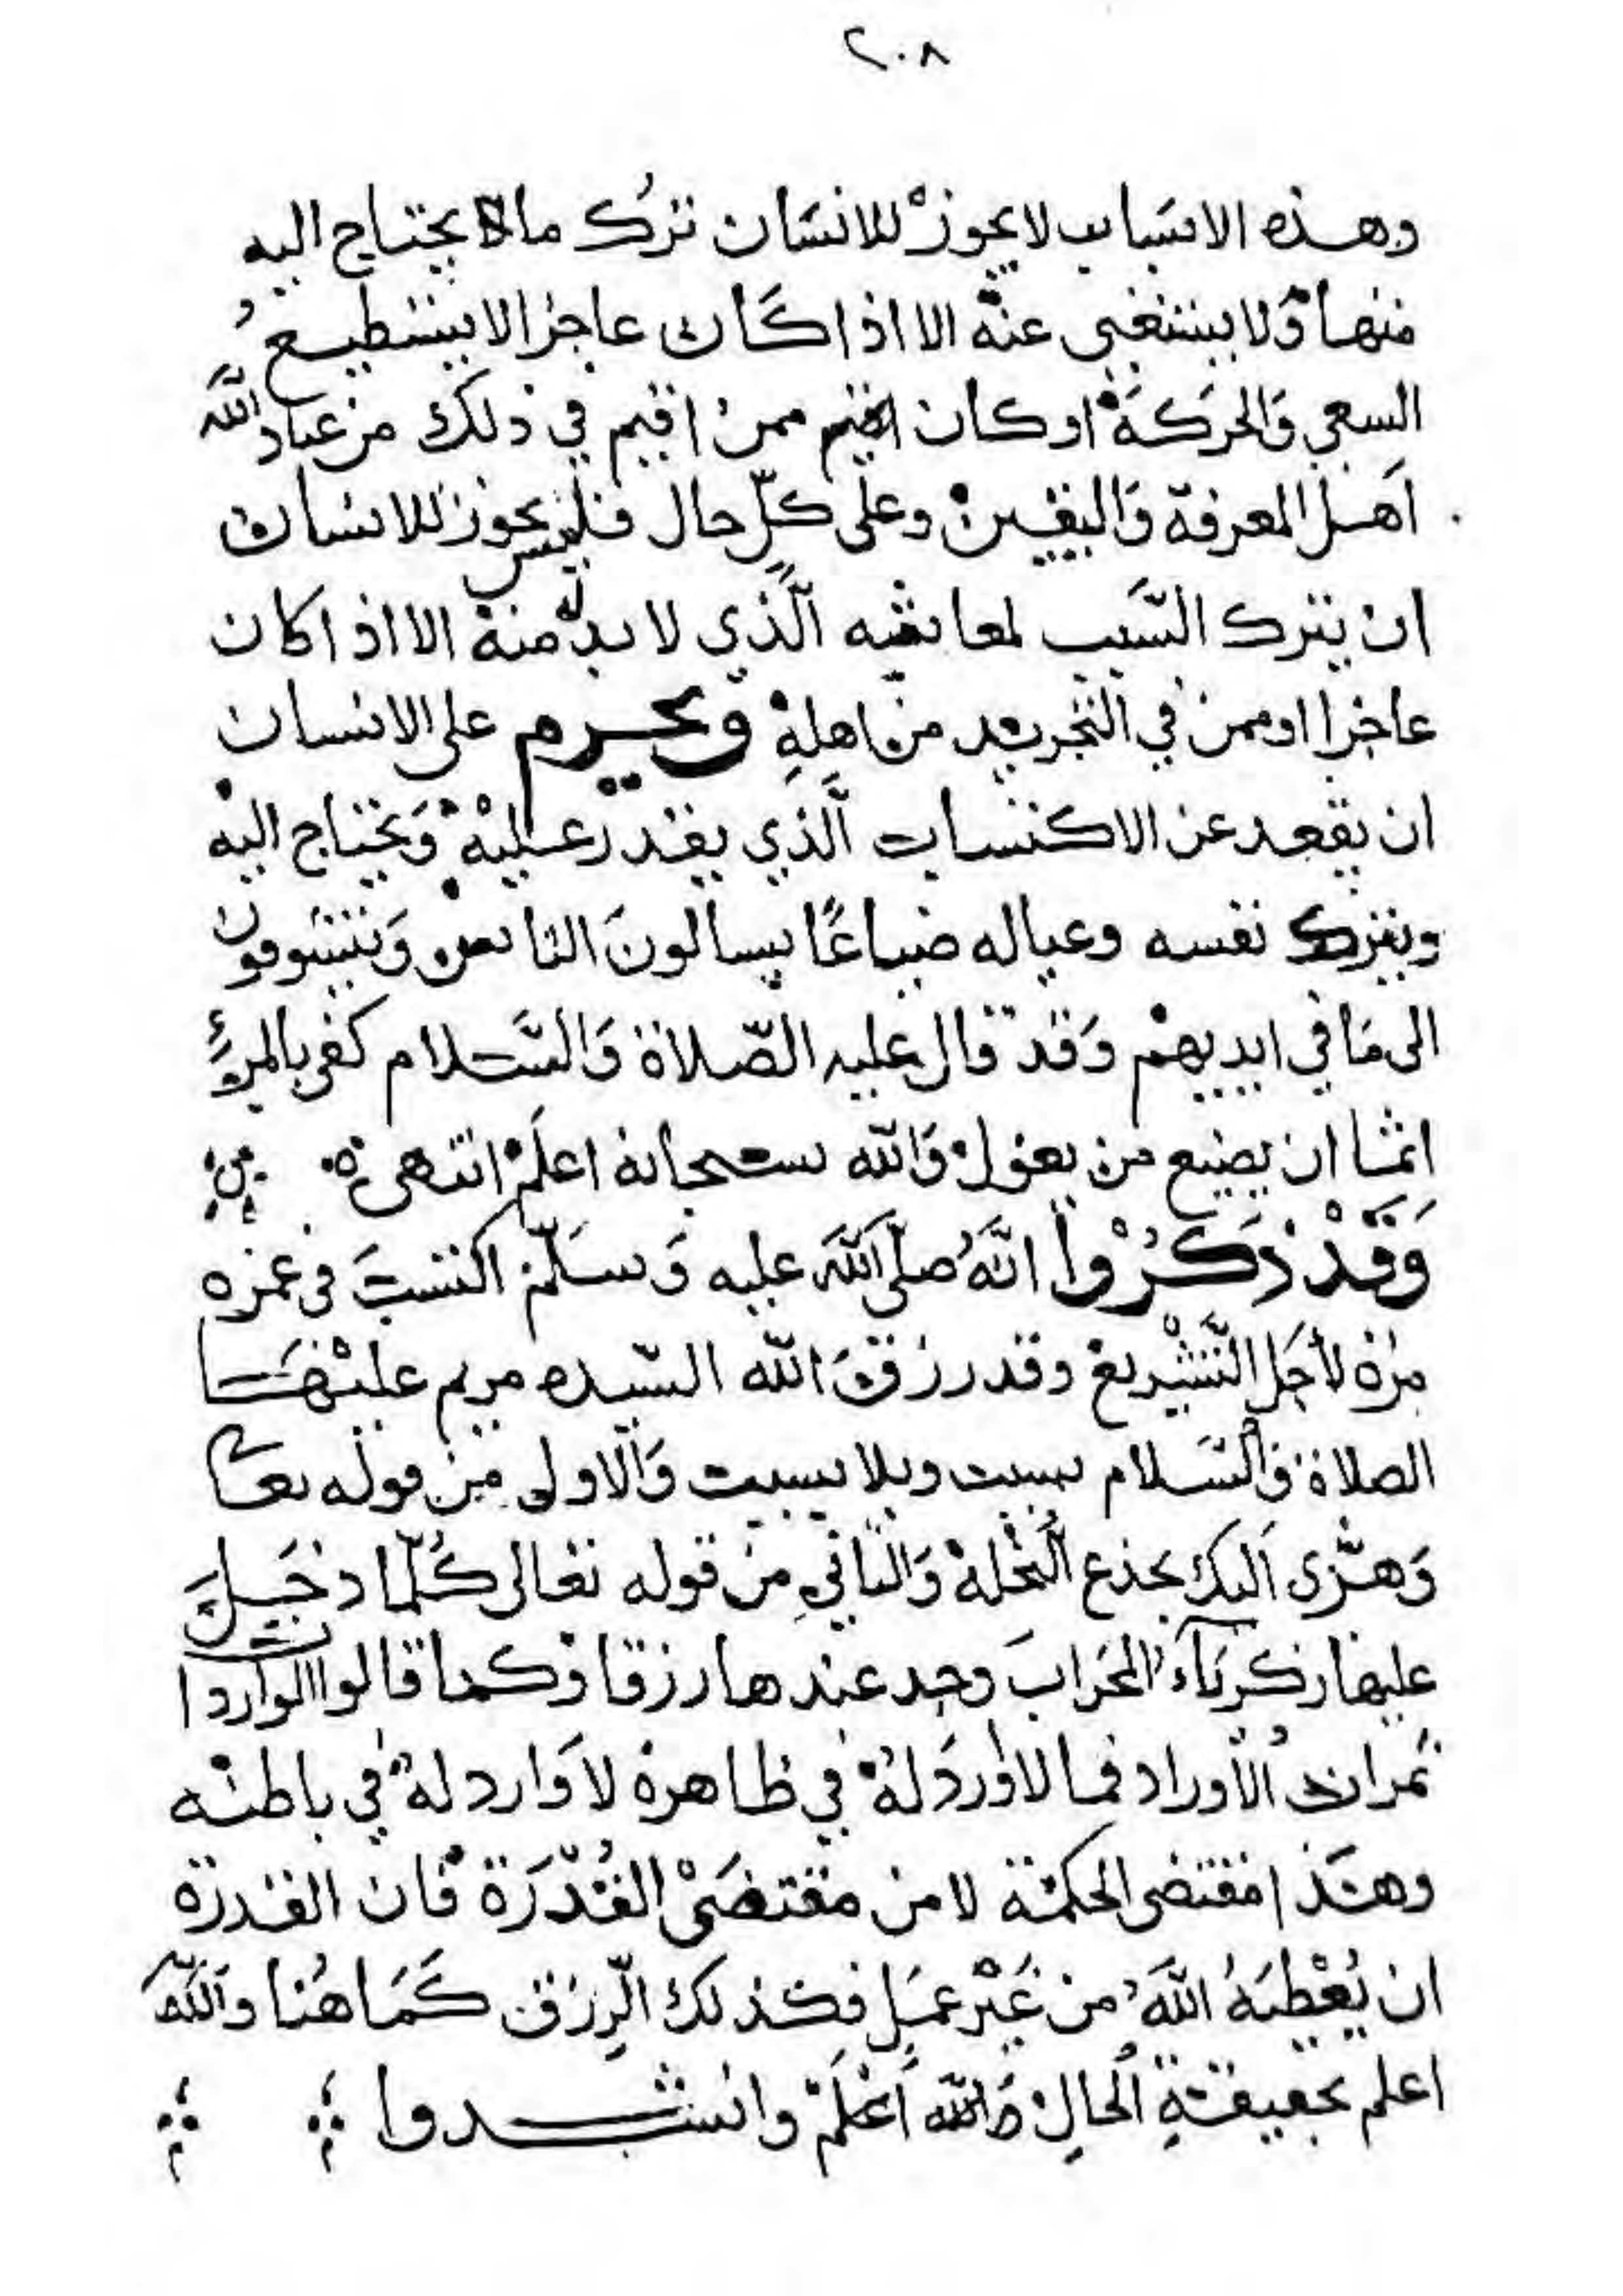 ٢٠٨
وهذه الاسباب لا يجوز للانسان ترك ما يحتاج اليه
منها ولا يستغنى عنه الا اذا كان عاجزا لا يستطيع
السعي والحركة او كان ممن اقيم في ذلك من عباد الله
اهل المعرفة واليقين وعلى كل حال فليس يجوز للانسان
ان يترك السبب لمعاشه الذي لا بد له منه الا اذا كان
عاجزا او ممن في التجريد من اهله ويحرم على الانسان
ان يقعد عن الاكتساب الذي يقدر عليه ويحتاج اليه
ويترك نفسه وعياله ضياعًا يسالون الناس ويتشوفون
الى ما في ايديهم وقد قال عليه الصّلاة والسّلام كفى بالمرءِ
اثما ان يضيع من يعول والله سبحانه اعلم انتهى
وَقَدْ ذَكَرُوا انّه صلّى الله عليه وسلّم اكتسب في عمره
مرة لأجل التّشريع وقد رزق الله السّيده مريم عليها
الصلاة والسّلام بسبب وبلا بسبب والاولى من قوله تعا
وهزّى اليك بجذع النّخلة والثاني من قوله تعالى كُلّما دخل
عليها زكرياء المحراب وجد عندها رزقا وكما قالوا الواردات
ثمرات الأوراد فما لا ورد له في ظاهره لا وارد له في باطنه
وهذا مقتضى الحكمة لا من مقتضى القُدْرَة فان القدرة
ان يُعْطيهُ الله من غَيْر عمل فكذلك الرّزق كَمَا هُنا والله
اعلم بحقيقة الحال والله أعْلَمْ وانشدوا